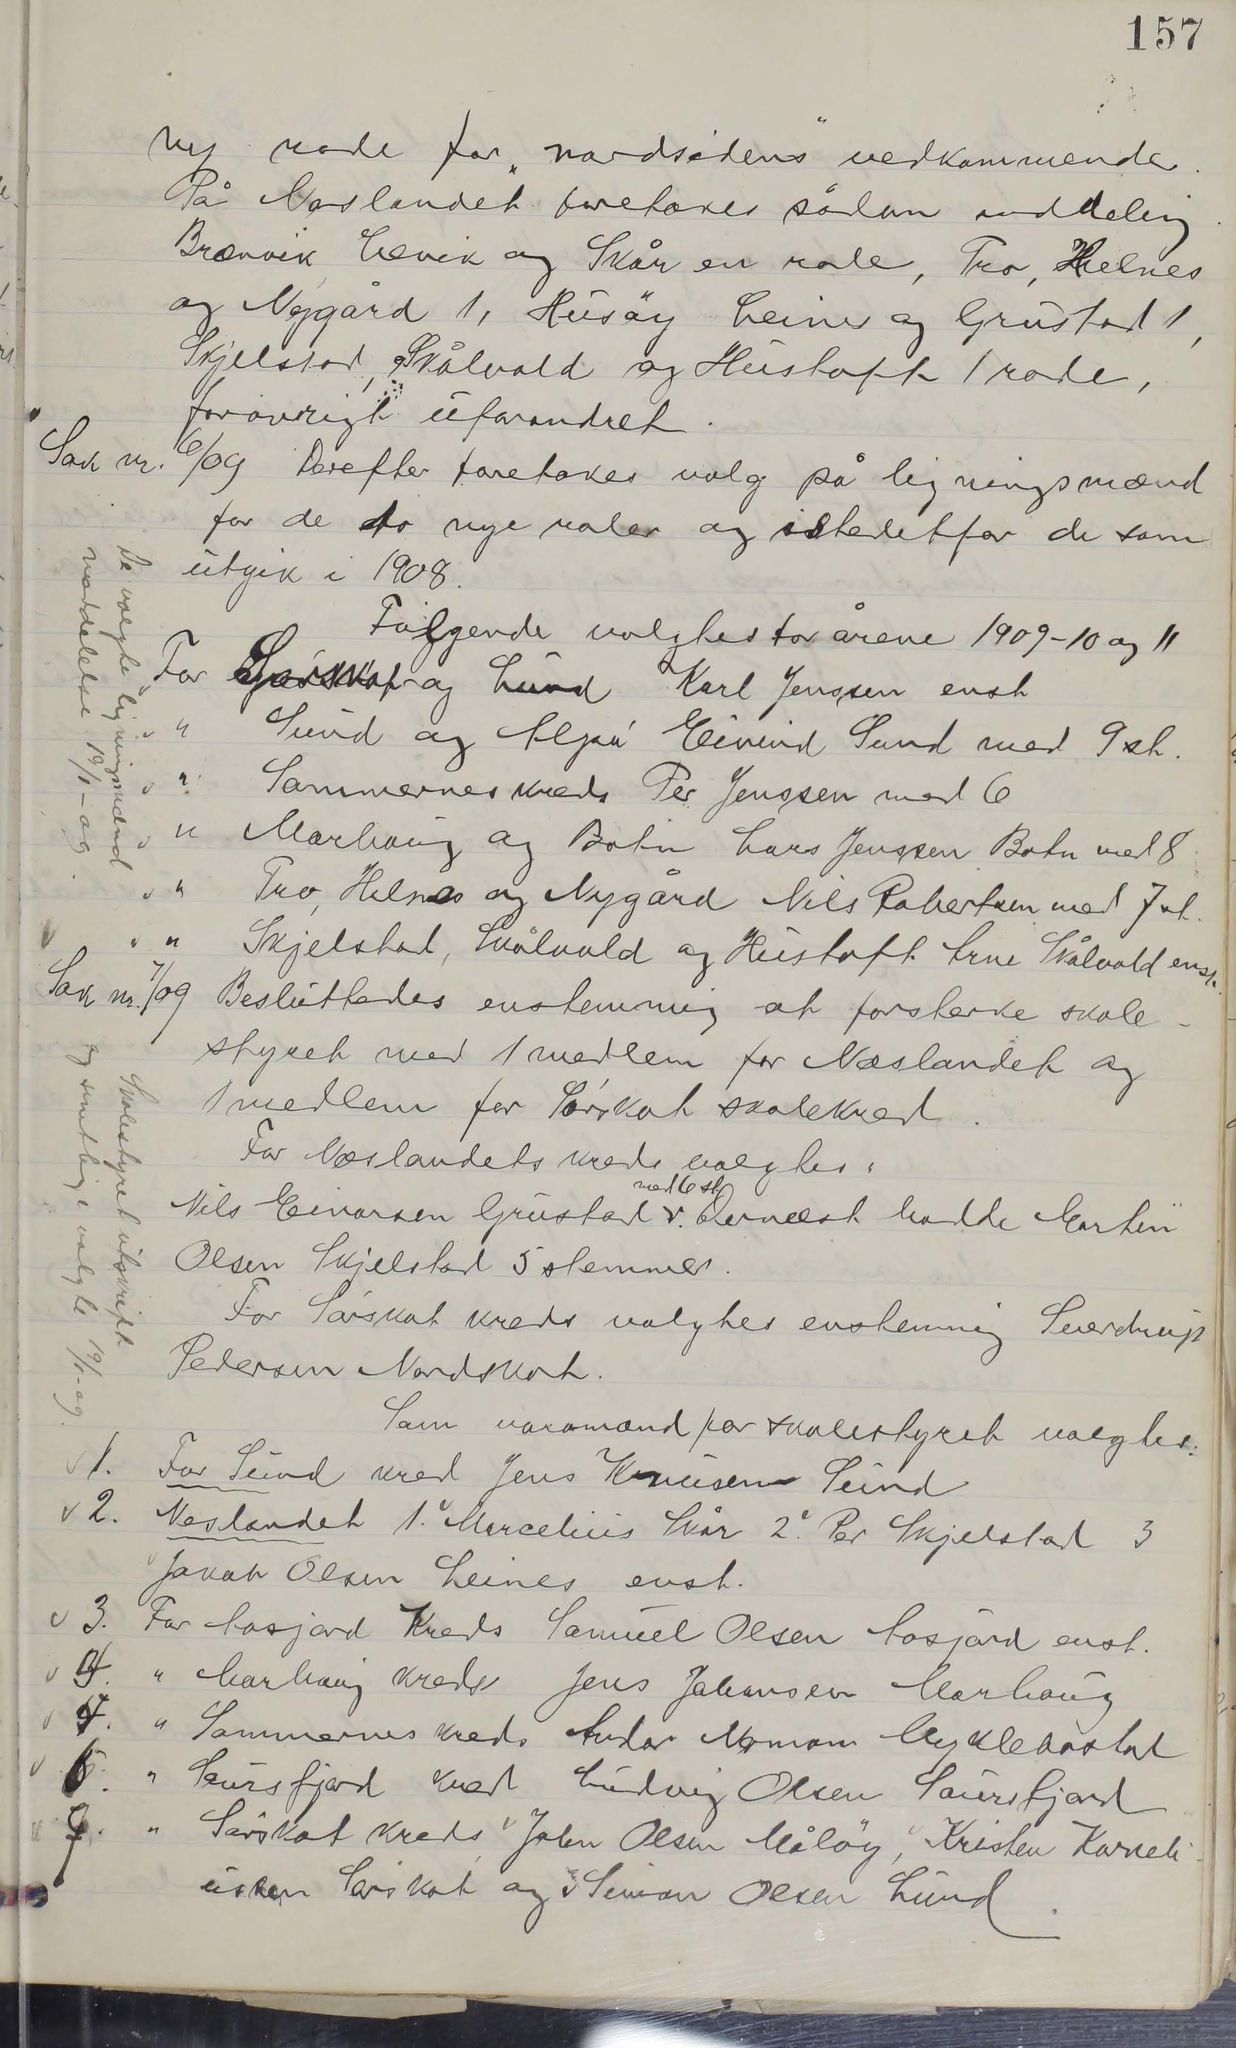 157
ny rode for "nordsidens" vedkommende.
På Næslandet foretaxes sådan inddeling
Brænvik Levik og Skår en rode, Tro, Helnes
og Nygård 1, Husöy Leines og Grustad 1,
Skjelstad, Skålvold og Hustoft 1 rode,
forøvrigt uforandret.
Sak nr. 6/09 Derefter foretaxes valg på ligningsmænd
for de to nye roder og istedetfor de som
utgik i 1908.
Følgende valgtes for årene 1909-10 og 11
For Sørskot og Lund Karl Jenssen enst
" Sund og Alpå Eivind Sund med 9 st.
" Sammernes kreds Per Jenssen med 6
" Marhaug og Botn Lars Jenssen Botn med 8
" Tro, Helnes og Nygård Nils Robertsen med 7 st.
" Skjelstad, Skålvold og Hustoft Arne Skålvold enst.
De valgte ligningsmænd
meddelelse 19/1-09
Sak nr. 7/09 Besluttedes enstemmig at forsterke skole-
styret med 1 medlem for Næslandet og
1 medlem for Sørskot skolekred.
For Næslandets kreds valgtes:
Nils Einarsen Grustad med 6 st. v. Dernæst hadde Martin
Olsen Skjelstad 5 stemmer.
For Sørskot kreds valgtes enstemmig Sverdrup
Pedersen Nordskot.
Skolestyret utskrift
og samtlige valgte 19/1-09.
Som varamænd for skolestyret valgtes:
1. For Sund kred Jens Knusen Sund
2. Neslandet 1. Marcelius Skår 2. Per Skjelstad 3
Jakob Olsen Leines enst.
3. For Åsjord Kreds Samuel Olsen Åsjord enst.
4. " Marhaug kreds Jens Johansen Marhaug
5. " Sammernes kreds Andor Momom Myklebostad
6. " Saursfjord kred Ludvig Olsen Saursfjord
7. " Sørskot kreds, John Olsen Måløy, Kristen Korneli-
ussen Sørskot og Simon Olsen Lund.